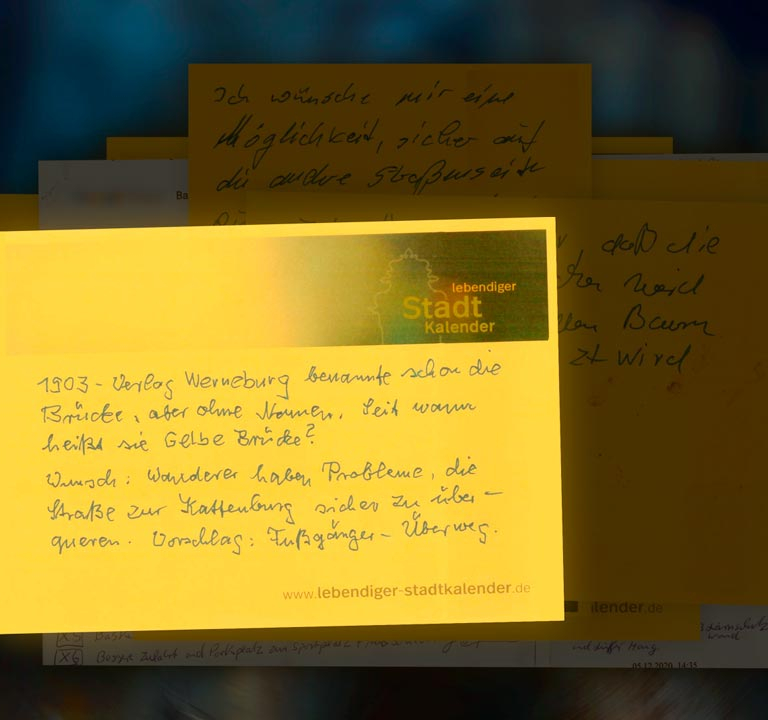 Ich wünsche mir eine
Möglichkeit, sicher auf
die andre Straßenseite
Ba
daß die
Baum
wird
lebendiger
Stadt
Kalender
1903 - Verlag Werneburg benannte schon die
Brücke, aber ohne Namen. Seit wann
heißt sie Gelbe Brücke?
Wunsch: Wanderer haben Probleme, die
Straße zur Kattenburg sicher zu über-
queren. Vorschlag: Fußgänger-Überweg.
www.lebendiger-stadtkalender.de
lender.de
X5
X6 Bessere Zufahrt und Parkplatz am Sportplatz
05.12.2020, 14:35